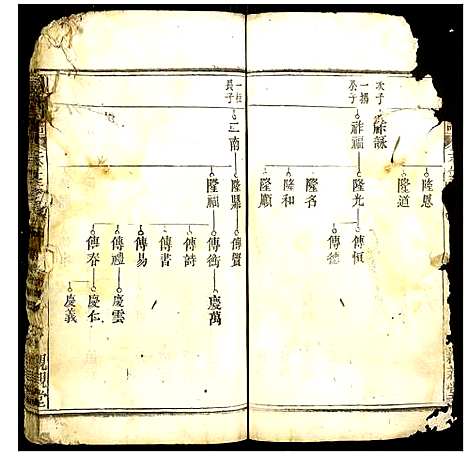 次子
祚詠
隆恩
隆道
一揚
公子
祚福
隆光
傳恒
傳德
隆名
隆和
隆順
一柱
長子
一南
隆福
傳贊
傳衡
慶萬
傳詩
傳書
傳易
傳禮
慶雲
傳春
慶仁
慶義
親親堂